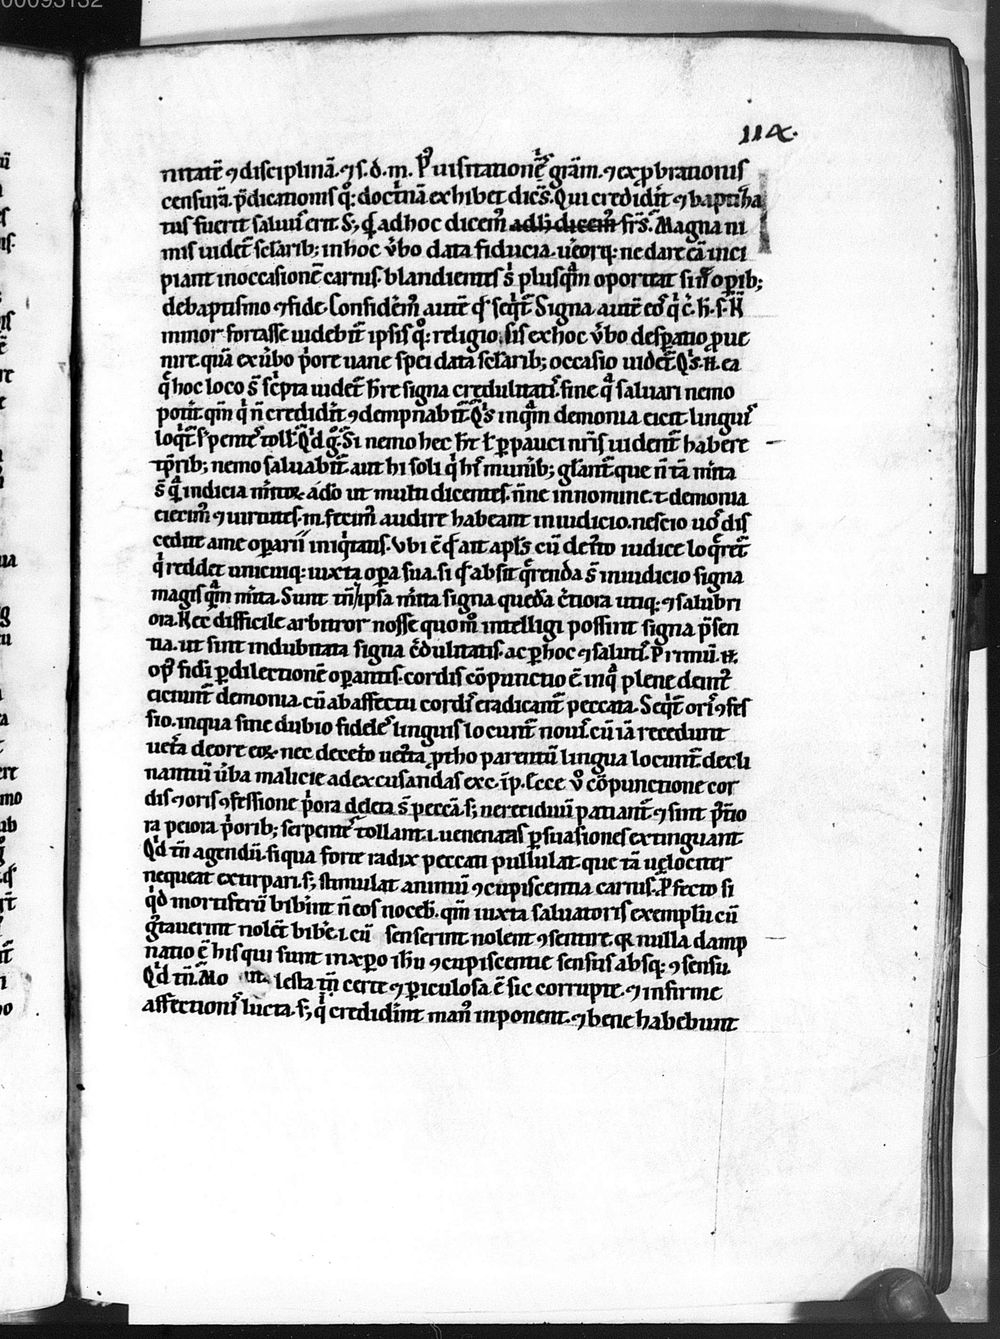 00093132
114.
nitatē ⁊ disciplinā. ⁊ s. d. m. Pꝰ uisitationē ḡram. ⁊ exp̱brationis
censurā. p̄dicationis q̊; doctͥnā exhibet dicēs. Qui credidit ⁊ baptiza
tus fuerit saluus erit. S; qd ad hoc dicemꝰ frēs. Magna ni
mis uidet᷑ sclarib; in hoc v̓bo data fiducia. uereorq; ne dare eā inci
piant in occasionē carnis. blandientes s̓ plusq̄m oportuat sine op̱ib;
de baptismo ⁊ fide. Considerem̓ autē qd seqt᷑. Signa autē eos q̓ c̓. h̄. s.
minor fortasse uidebit᷑ ipsis q̊; religiosis ex hoc v̓bo desp̱atio ꝓue
nire. quā ex v̓bo p̓ore uane spei data sclarib; occasio uidet᷑. Q̓s. n. ea
q̄ hoc loco s̄ sc̓pta uidet᷑ h̄re signa credulitatis. sine q̄ saluari nemo
potit. qm̄ q̓ n̄ credidit ⁊ dempnabit᷑. Q̓s inq̄m demonia eicit. linguis
loqt᷑. s̓pentes toll. Qd ḡ. Si nemo hec h̄t ł p̱pauci nr̄is uident᷑ habere
tp̄rib; nemo saluabit᷑ aut hi soli q̓ hi᷒ munib; gl̓ant᷑. que n̄ tā m̓ita
s̄ q̄ indicia m̓itoꝝ. adō ut multi dicentes. n̄ne in nomine. t. demonia
eiecim̓ ⁊ uirtutes. m. fecim̓ audire habeant in iudicio. nescio uos dis
cedite a me op̱arii iniq̓tatis. Vbi ē qd ait apl̄s cū de xp̄o iudice loq̄ret᷑
q̓ reddet unicuiq; iuxta op̱a sua. si qd absit q̄renda s̄ in iudicio signa
magis q̄m m̓ita. Sunt tn̄ ipsa m̓ita signa quedā c̓tiora utiq; ⁊ salubri
ora. Nec difficile arbitror nosse quom̊ intelligi possint signa p̄sen
tia. ut sint indubitata signa c̓dulitatis. ac p̱ hoc ⁊ salutis. Primū. n.
op̓ fidi p̱ dilectionē op̱antis. cordis cōpunctio ē in q̓ plene deinde
eiciunt᷑ demonia. cū ab affectu cordis eradicant᷑ peccata. Seqt᷑ oris ⁊fes
sio. inqua sine dubio fideles linguis locunt᷑ nouis. cū iā recedunt
uet̓a de ore eoꝝ. nec decet̓o uet̓ta p̱tho parentū lingua locunt᷑ decli
nantiū v̓ba malicie ad excusandas exc. ī p. Cece. v̊ cōpunctione cor
dis ⁊ oris ⁊fessione p̓ora deleta s̄ peccā. s; ne recidiuū patiant᷑ ⁊ sint p̓tio
ra peiora p̓orib; serpentes tollant. i. uenenatas p̱suasiones extinguant.
Qd tn̄ agendū. si qua forte radix peccati pullulat. que tā uelociter
nequeat extirpari. s; stimulat animū ⁊cupiscentia carnis. Ꝓfecto si
q̓d mortiferū bib̓int n̄ eos noceb. qm̄ iuxta saluatoris exemplū cū
g̓tauerint nolēt bibe. i. cū senserint nolent ⁊sentire. qꝛ nulla damp
natio ē his qui sunt in xp̄o ihū ⁊cupiscentie sensus absq; ⁊sensu.
Qd tn̄. Mo lesta tn̄ certe ⁊ p̱iculosa ē sic corrupte. ⁊ infirme
affectionis lucta. s; q̓ credid̓int man̓ inponent. ⁊ bene habebunt